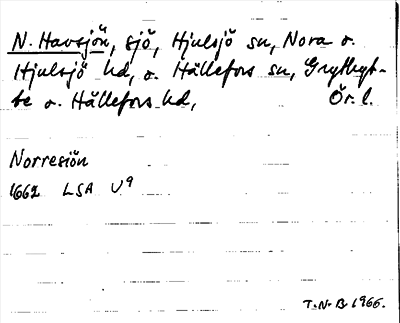 N. Havsjön, sjö, Hjulsjö sn, Nora o.
Hjulsjö hd, o. Hällefors sn, Grythyt-
te o. Hällefors hd, Ör. l.
Norresiön
1662 LSA U9
T.N.B. 1966.